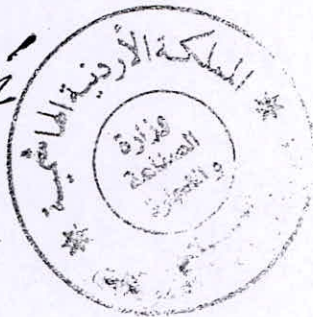 المملكة الأردنية الهاشمية
وزارة
الصناعة
و التجارة